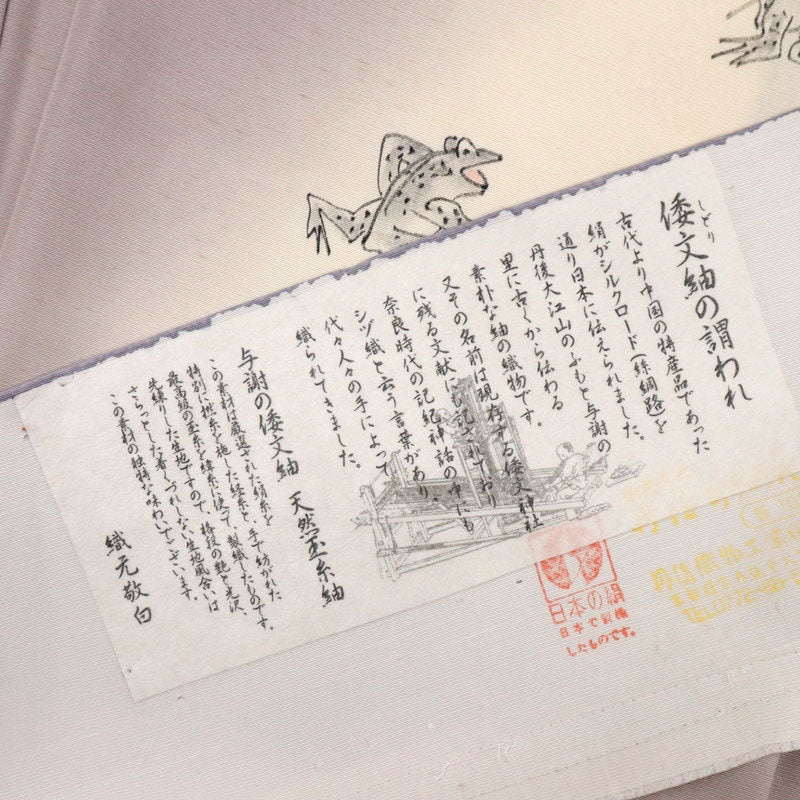 しどり
倭文紬の謂われ
古代より中国の特産品であった
絹がシルクロード(絲綢路)を
通り日本に伝えられました。
丹後大江山のふもと与謝の
里に古くから伝わる
素朴な紬の織物です。
又その名前は現存する倭文神社
に残る文献にも記されており
奈良時代の記紀神話の中にも
シヅ織と云う言葉があり、
代々人々の手によって
織られてきました。
与謝の倭文紬 天然玉糸紬
この素材は厳選された絹糸を
特別に撚糸を施した経糸と、手で紡がれた
最高級の玉糸を緯糸に使って、製織したものです。
先練りした生地ですので、独特の艶と光沢、
さらっとした着くづれしない生地風合いは
この素材の独特な味わいでございます。
織元敬白
日本の絹
日本で製織
したものです。